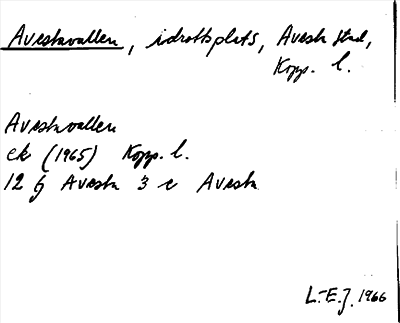 Avestavallen, idrottsplats, Avesta stad,
Kopp. l.
Avestavallen
ek (1965) Kopp. l.
12 G Avesta 3 c Avesta
L.-E.J. 1966